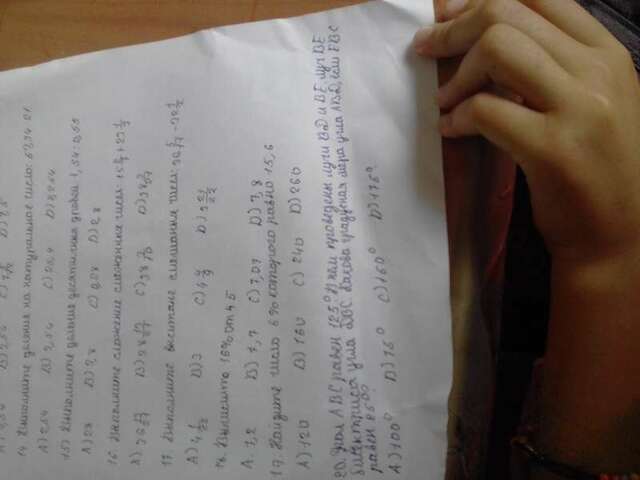 14. Выполните деления на натуральное число: 53,34 : 21
A) 254 B) 2,54 C) 25,4 D) 0,254
15) Выполните деление десятичных дробей 1,54 : 0,55
A) 28 B) 2,8 C) 0,28 D) 2,8
16. Выполните сложение смешанных чисел:
17. Выполните вычитание смешанных чисел:
A) 4 1/22 B) 3 C) 4 4/9 D) 3 21/22
18. Вычислите 16% от 45
A. 7,2 B) 7,7 C) 7,07 D) 7,8
19. Найдите число 6% которого равно 15,6
A) 120 B) 160 C) 240 D) 260
20. Угол ABC равен 125° В нем проведены лучи BD и BE. луч BE
биссектриса угла DBC. Какова градусная мера угла ABD, если EBC
равен 25°?
A) 100° B) 75° C) 150° D) 175°